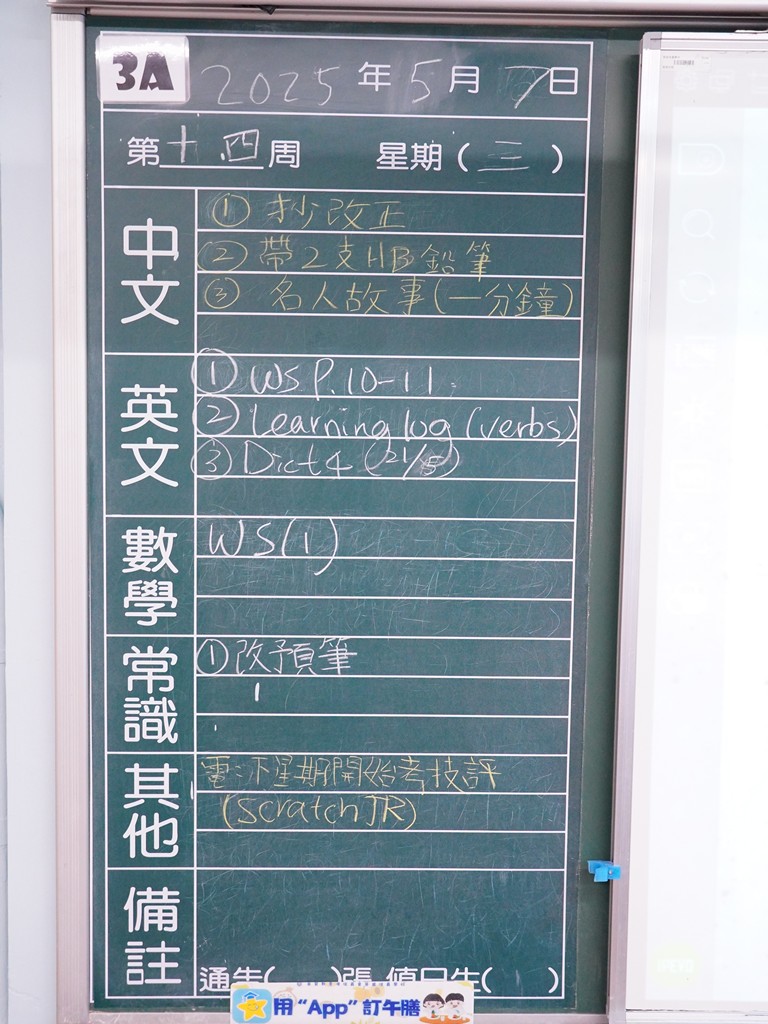 3A 2025年5月7日
第十四周 星期(三)
中文
① 抄改正
② 帶2支HB鉛筆
③ 名人故事(一分鐘)
英文
① WS P.10-11
② Learning log (verbs)
③ Dict 4 (21/5)
數學
WS(1)
常識
① 改預筆
其他
電:下星期開始考技評
(Scratch JR)
備註
通告( )張 值日生( )
用“App”訂午膳